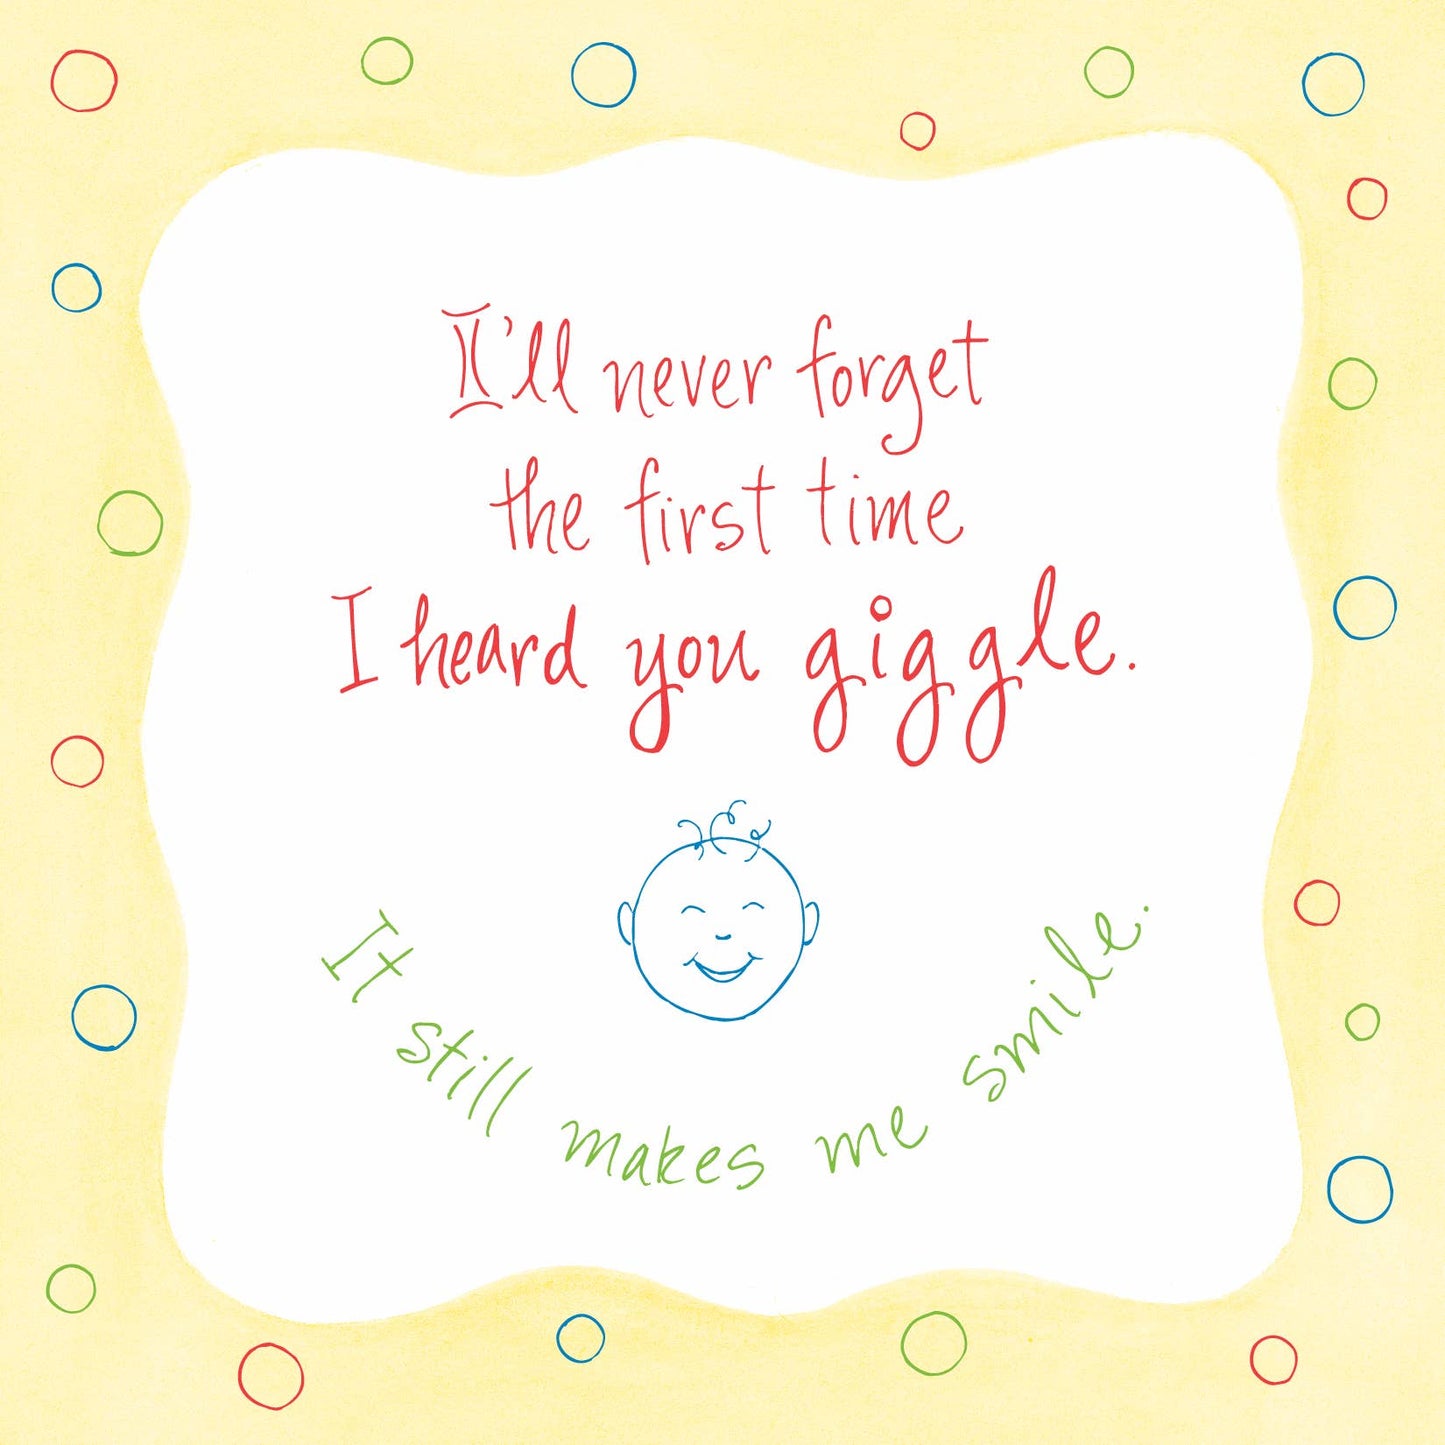 I'll never forget
the first time
I heard you giggle.
It still makes me smile.